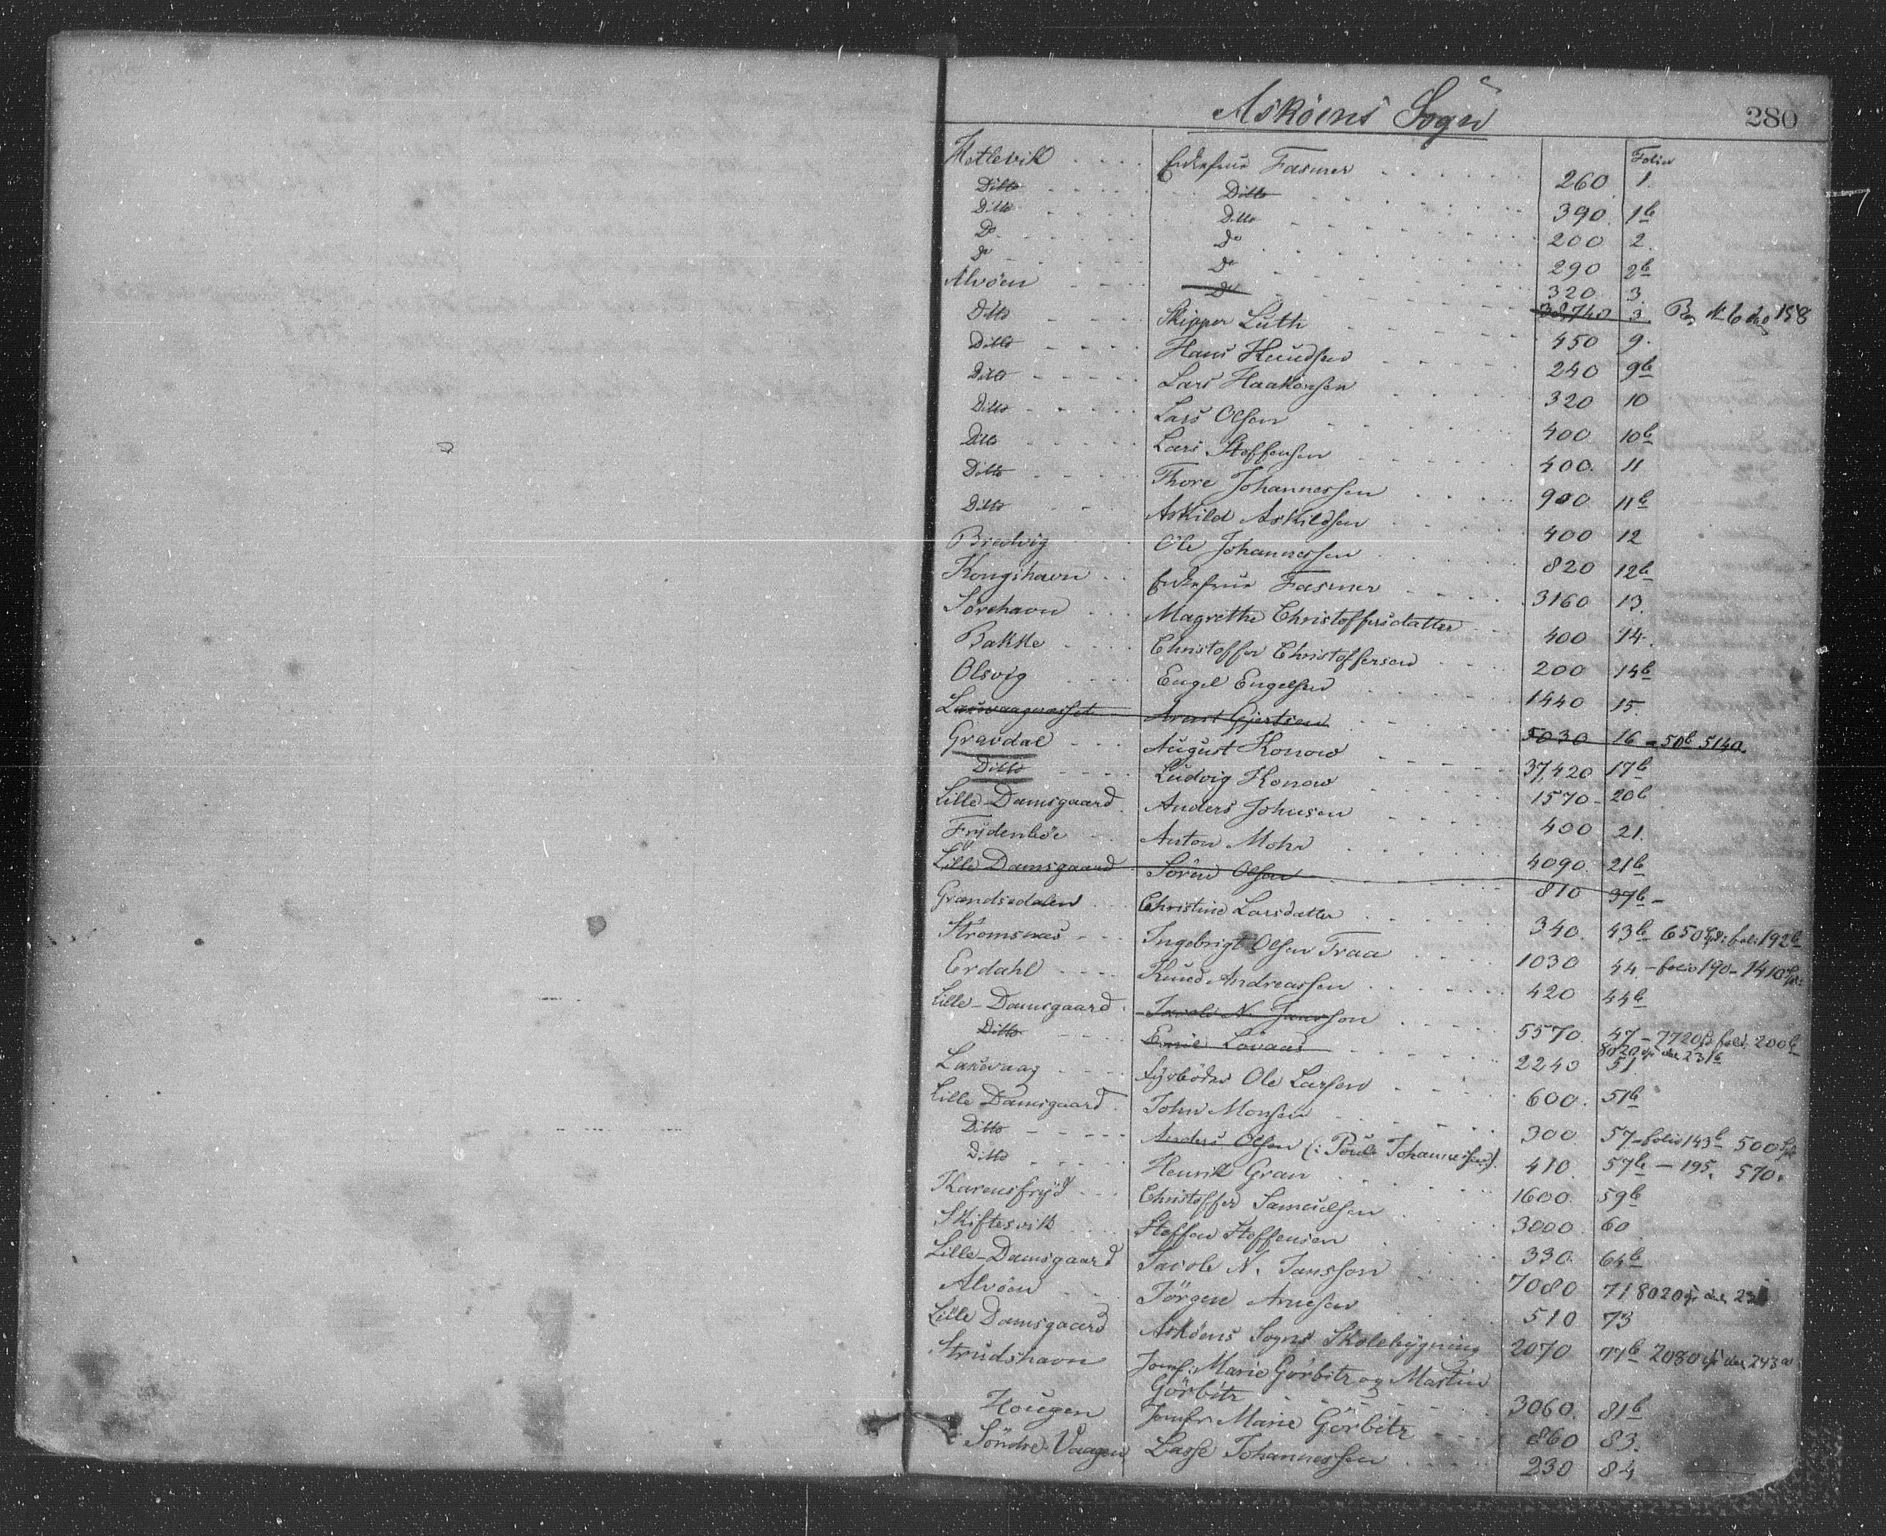 Askøens Sogn
280
Folio
Hetlevik Enkefrue Fasmer 260 1.
Ditto Ditto 390 1b
Ditto Ditto 200 2.
Do Do 290 2b
Do Do 320 3.
Alvøen Do 38,740 3. 158
Ditto Skipper Luth 450 9.
Ditto Hans Knudsen 240 9b
Ditto Lars Haakonsen 320 10
Ditto Lars Olsen 400 10b
Ditto Lars Steffensen 400. 11
Ditto Thore Johannessen 900 11b
Ditto Askild Askildsen 400 12
Bredvig Ole Johannessen 820 12b
Kongshavn Enkefrue Fasmer 3160 13.
Sørehavn Magrethe Christoffersdatter 400 14.
Bakke Christoffer Christoffersen 200 14b
Olsvig Engel Engelsen 1440 15.
Laxevaagnæsset Arent Gjertsen 5030 16 - 50b 5140.
Gravdal August Konow 37,420 17b
Ditto Ludvig Konow 1570 - 20b
Lille-Damsgaard Anders Johnsen 400 21.
Frydenbøe Anton Mohr 4090. 21b
Lille Damsgaard Søren Olsen 810 37b -
Grændsedalen Christine Larsdatter 340. 43b 650 fol: 192b
Strømsnæs Ingebrigt Olsen Traa 1030 44 - folio 190 - 1410
Erdahl Knud Andreassen 420 44b
Lille-Damsgaard Jacob N. Jansson 5570. 47 - 7720 fol. 200b
8020 231b
Ditto Emil Lovaas 2240 51
Laxevaag Fyrbøder Ole Larsen 600. 51b
Lille Damsgaard John Monsen 300 57 - folio 143b 500
Ditto Anders Olsen (: Poul Johannessen). 410. 57b - 195. 570.
Ditto Henrik Gran 1600. 59b
Karensfryd Christoffer Samuelsen 3000. 60
Skiftesvik Steffen Steffensen 330. 64b
Lille-Damsgaard Jacob N. Jansson 7080 71 8020
Alvøen Jørgen Arnesen 510 73
Lille Damsgaard Askøens Sogns Skolebygning 2070 77b 2080 243a
Strudshavn Jomf: Marie Görbitz og Martin
Görbitz 3060. 81b
Hougen Jomfr Marie Görbitz 860 83.
Søndre-Vaagen Lasse Johannessen 230 84